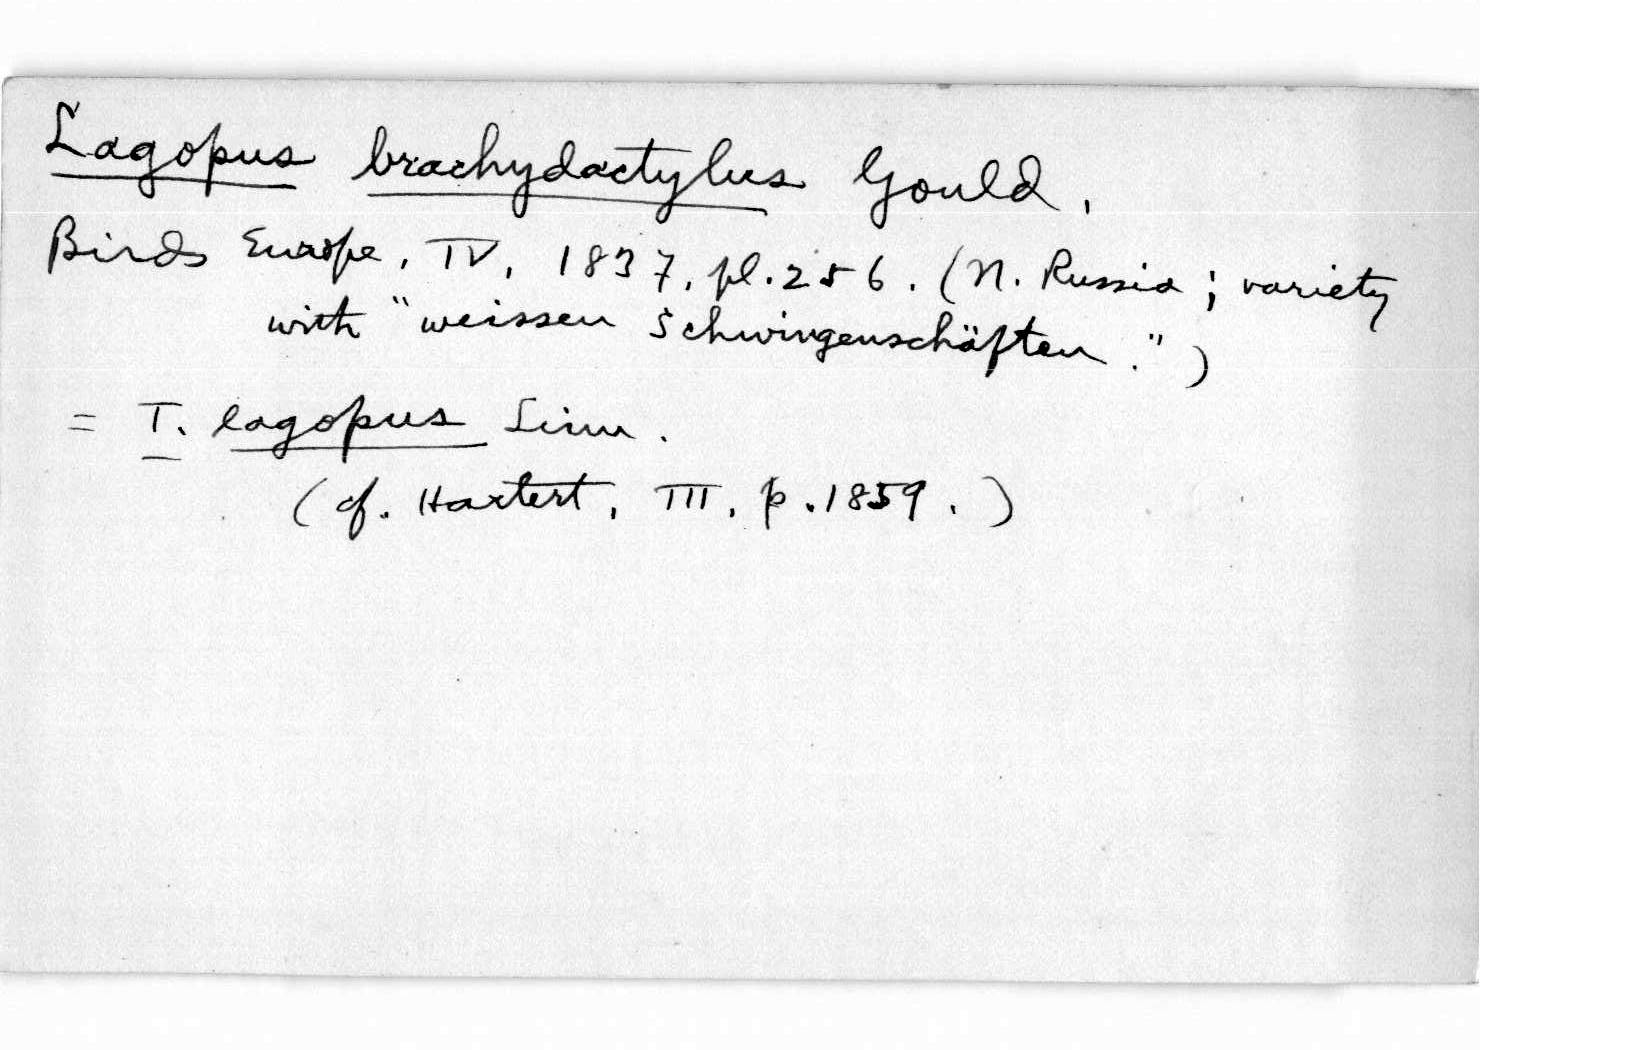 Lagopus brachydactylus Gould,
Birds Europe, IV, 1837, pl. 256. (N. Russia; variety
with "weissen Schwingenschäften.")
= T. lagopus Linn.
(cf. Hartert, III, p. 1859.)